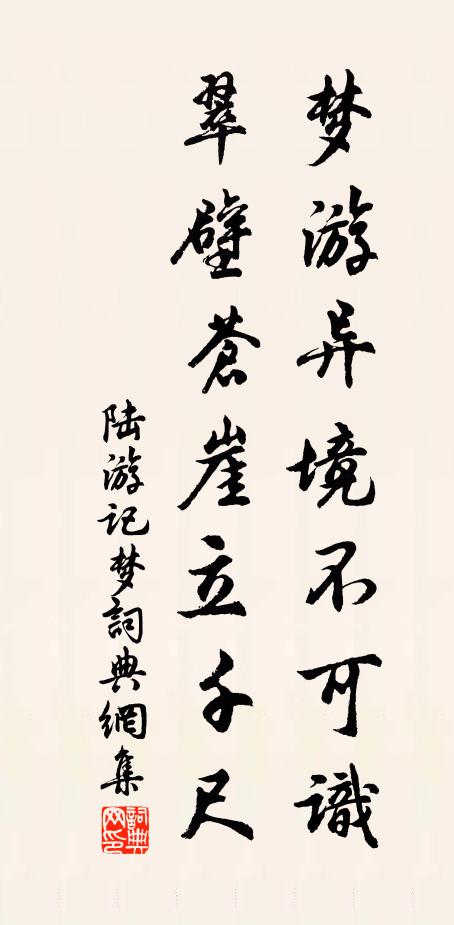 梦游异境不可识
翠壁苍崖立千尺
陆游记梦詞典網集
詞典网印